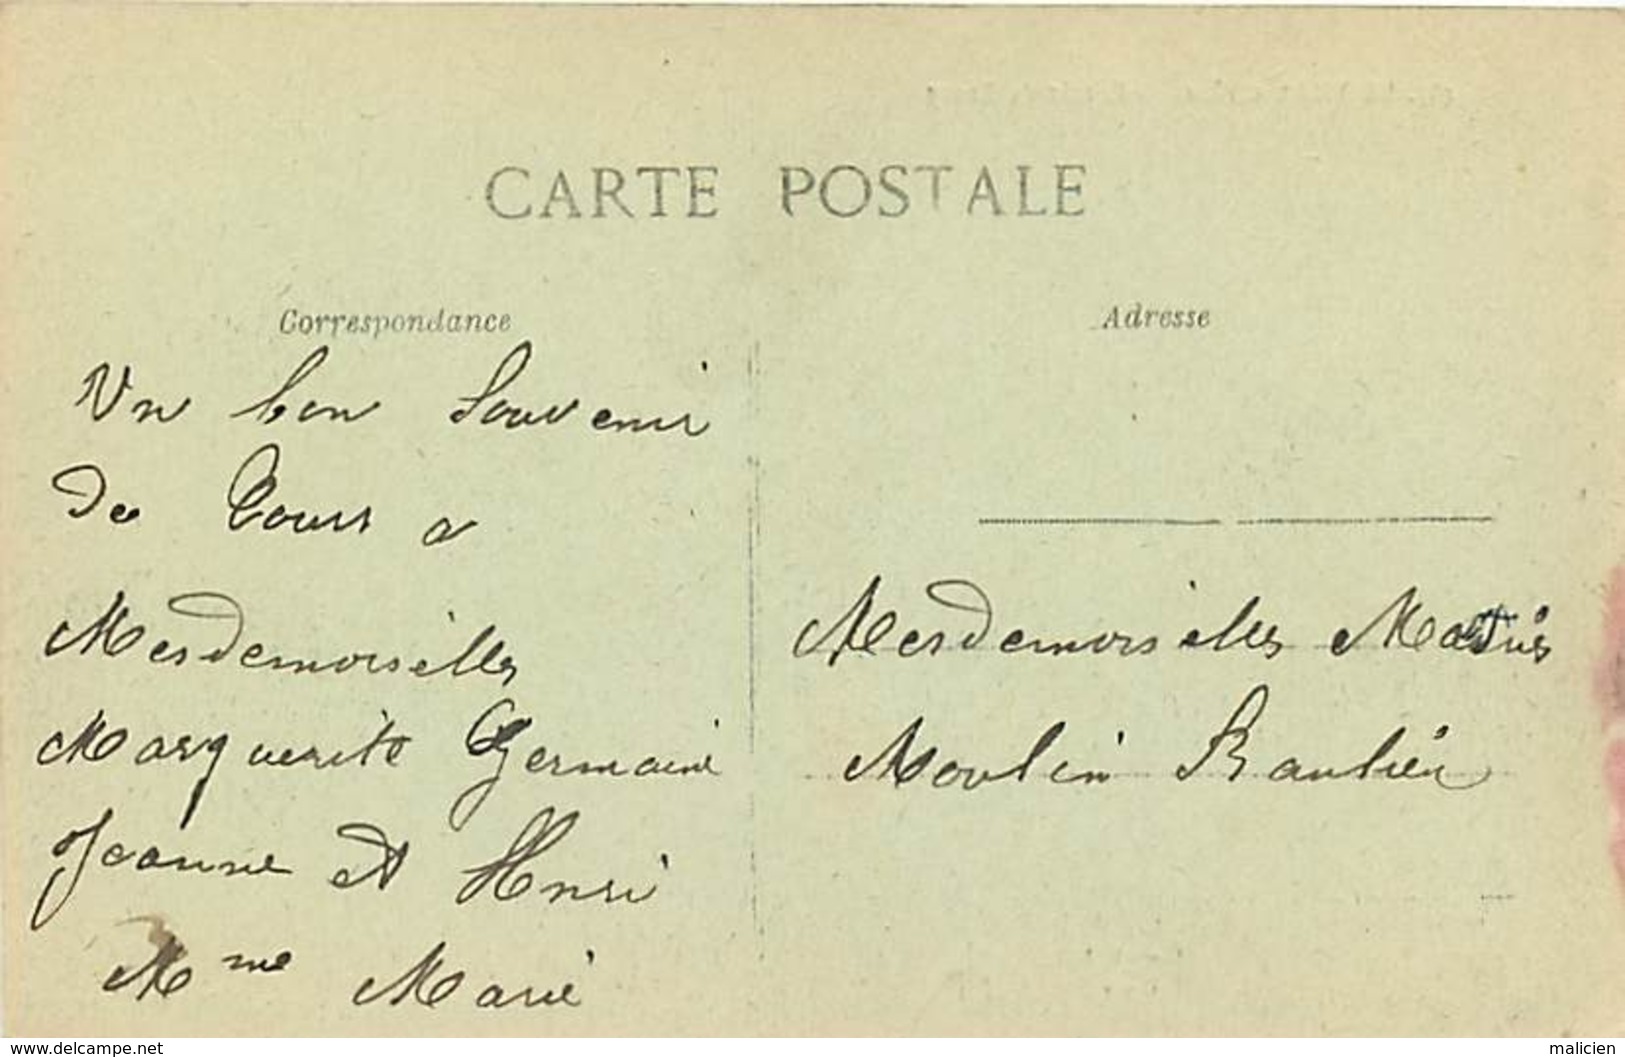 CARTE POSTALE
Correspondance
Un bon Souvenir
De Tours a
Mesdemoiselles
Marguerite Germaine
Jeanne et Henri
Mme Marie
Adresse
Mesdemoiselles
Moulin
www.delcampe.net
malicien